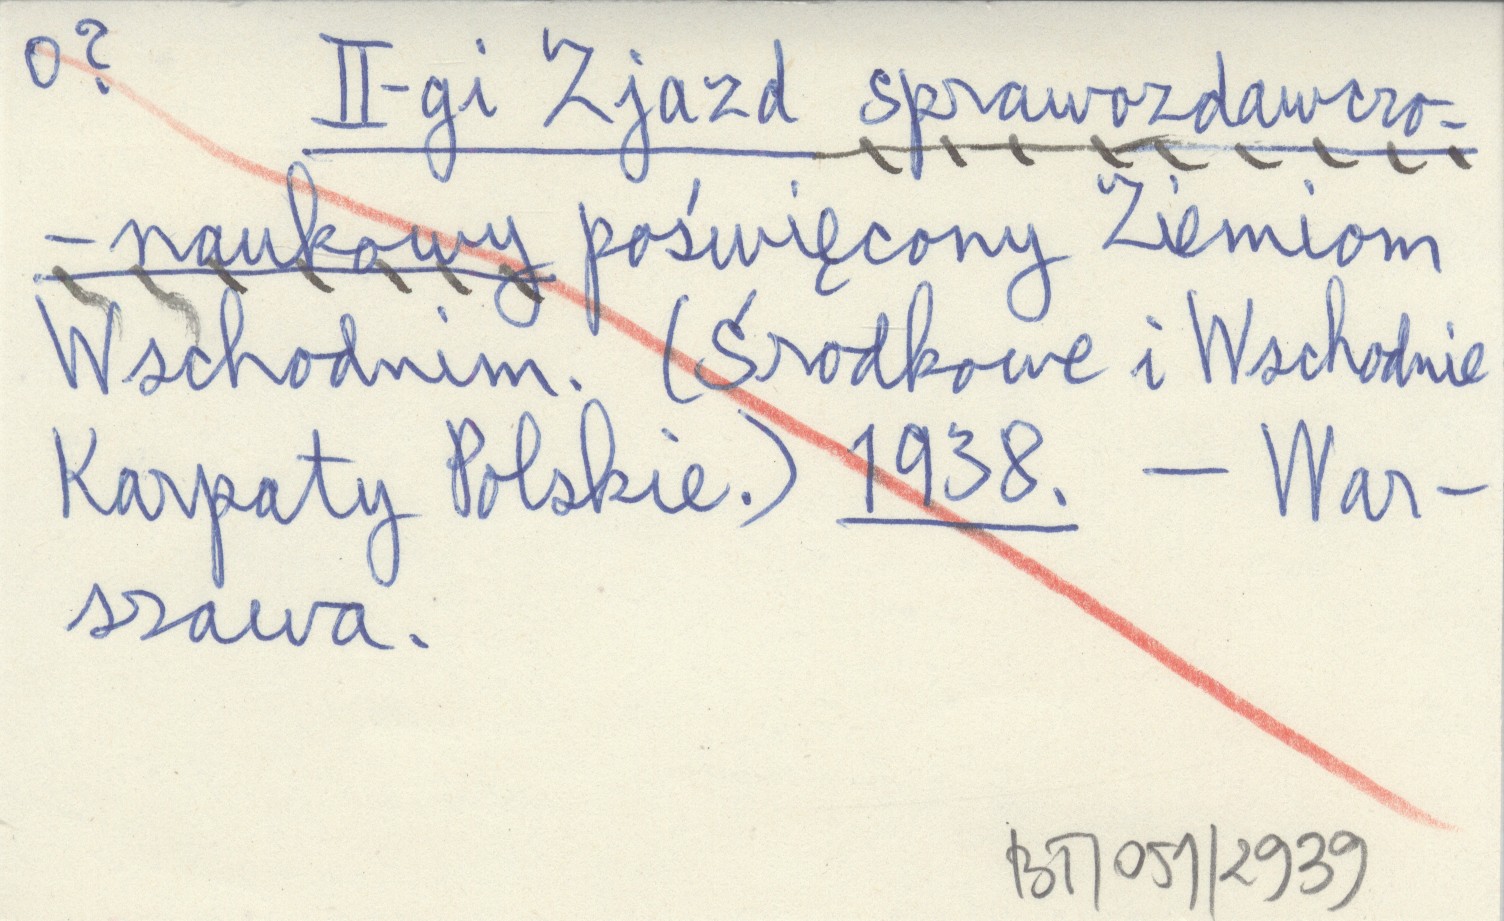 O? II-gi Zjazd sprawozdawczo-
-naukowy poświęcony Ziemiom
Wschodnim. (Środkowe i Wschodnie
Karpaty Polskie.) 1938. — War-
szawa.
BT/051/2939